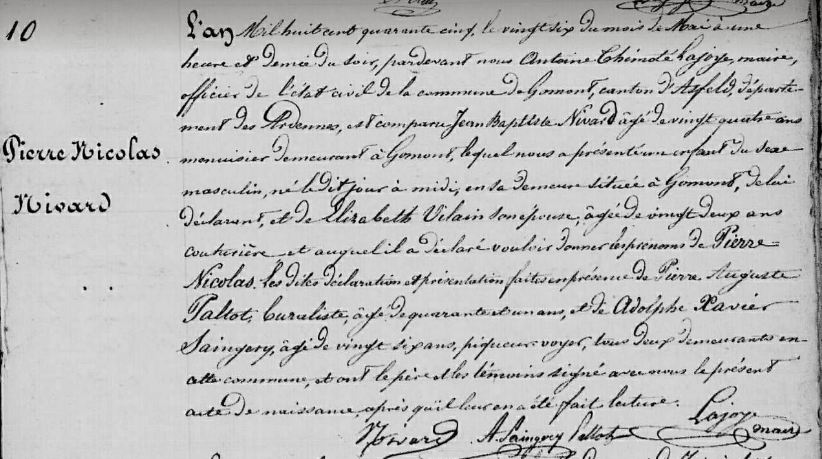 10
L'an Mil huit cent quarante cinq, le vingt six du mois de Mai à une
heure et demie du soir, pardevant nous Antoine Thimoté Lajoye, maire,
officier de l'état civil de la commune de Gomont, canton d'Asfeld, départe-
ment des Ardennes, est comparu Jean Baptiste Nivard âgé de vingt quatre ans
Pierre Nicolas
Nivard
menuisier demeurant à Gomont, lequel nous a présenté un enfant du sexe
masculin, né ledit jour à midi, en sa demeure située à Gomont, de lui
déclarant, et de Elizabeth Vilain son épouse, âgée de vingt deux ans
couturière et auquel il a déclaré vouloir donner les prénoms de Pierre
Nicolas. les dites déclaration et présentation faites en présence de Pierre Auguste
Taltot, buraliste, âgé de quarante et un ans, et de Adolphe Xavier
Saingery, âgé de vingt six ans, piqueur voyer, tous deux demeurants en
cette commune, et ont le père et les témoins signé avec nous le présent
acte de naissance, après qu'il leur en a été fait lecture.
Nivard A. Saingery Taltot Lajoye maire